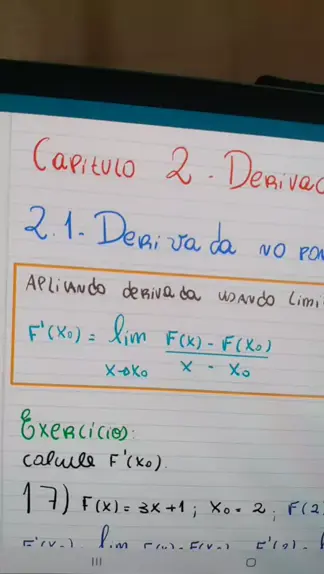 Capitulo 2 - Derivad
2.1- Derivada no pon
Aplicando derivada usando limi
F'(x₀) = lim F(x) - F(x₀)
x→x₀ x - x₀
Exercícios:
calcule F'(x₀).
17) F(x) = 3x + 1 ; x₀ = 2 ; F(2
F'(x₀) = lim F(x) - F(x₀) F'(2) = l